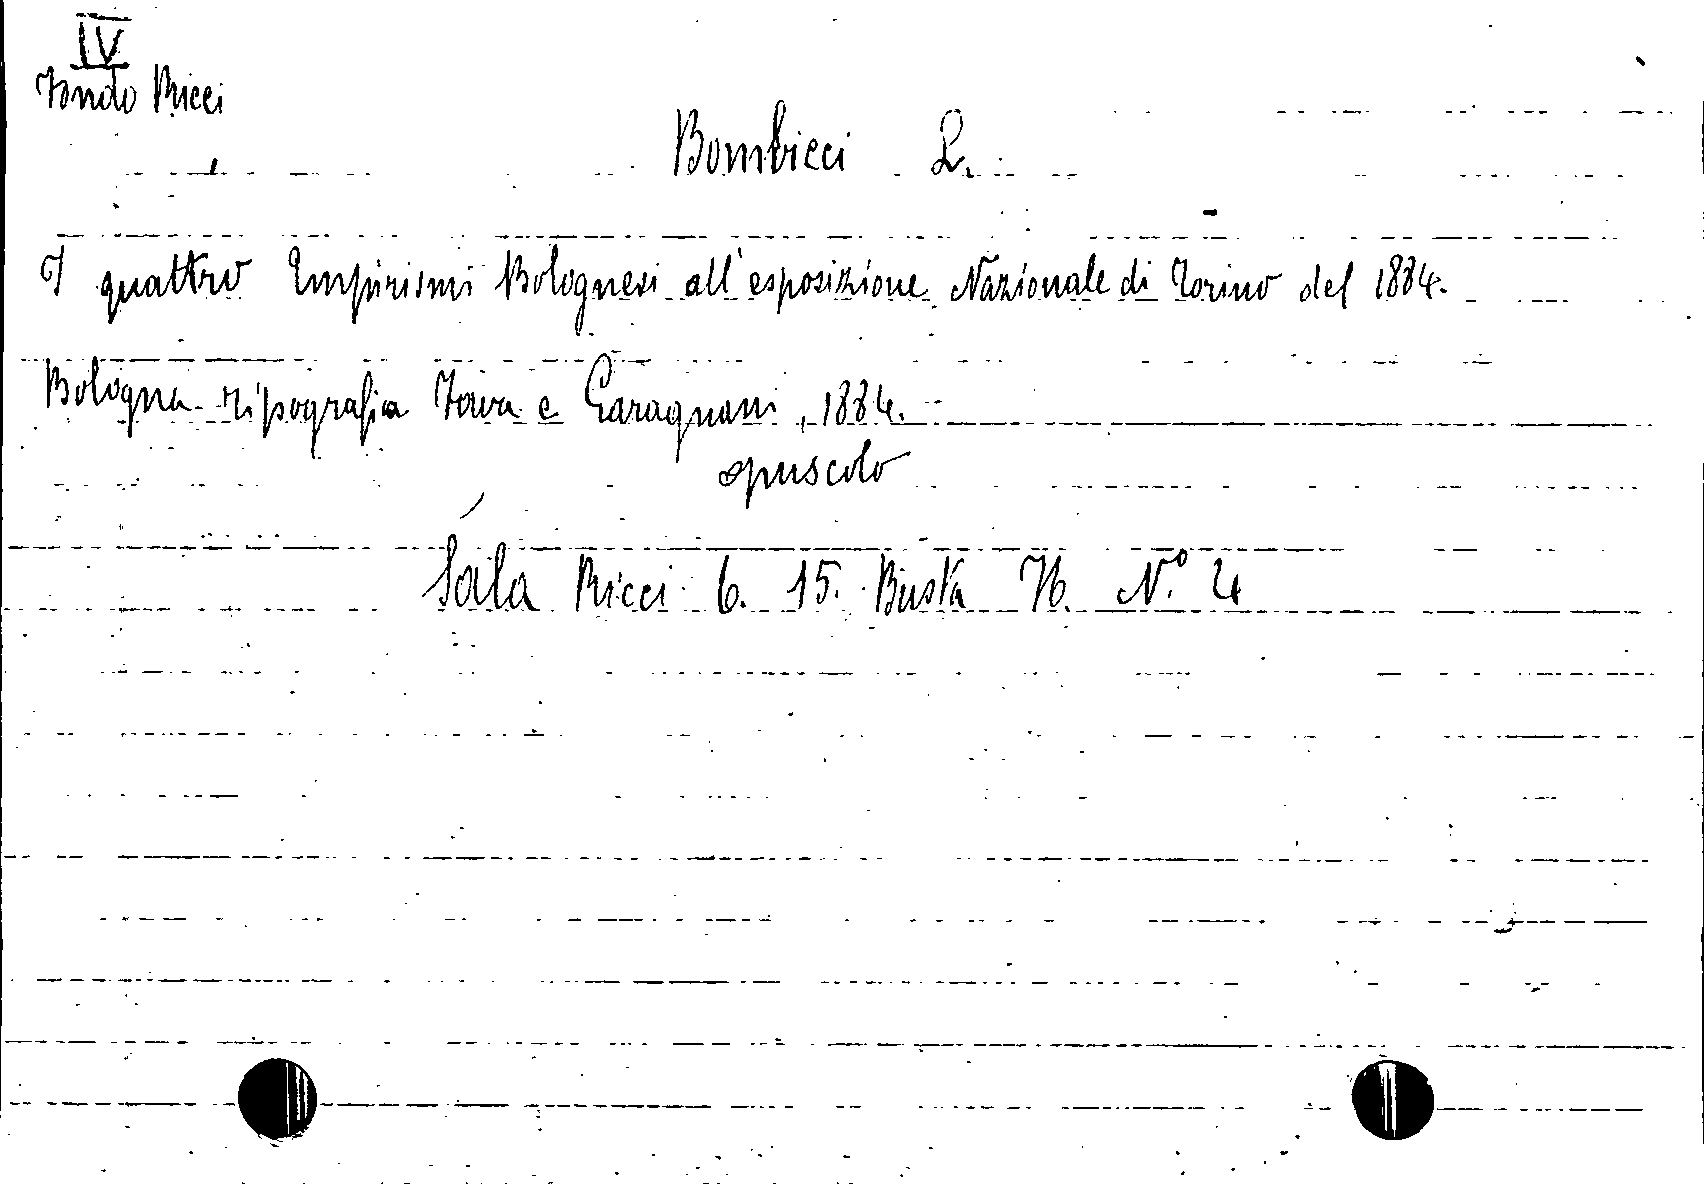 IV
Fondo Ricci
Bombicci L.
I quattro Empirismi Bolognesi all'esposizione Nazionale di Torino del 1884.
Bologna tipografia Fava e Garagnani, 1884.
opuscolo
Sala Ricci 6. 15. Busta N.º 4